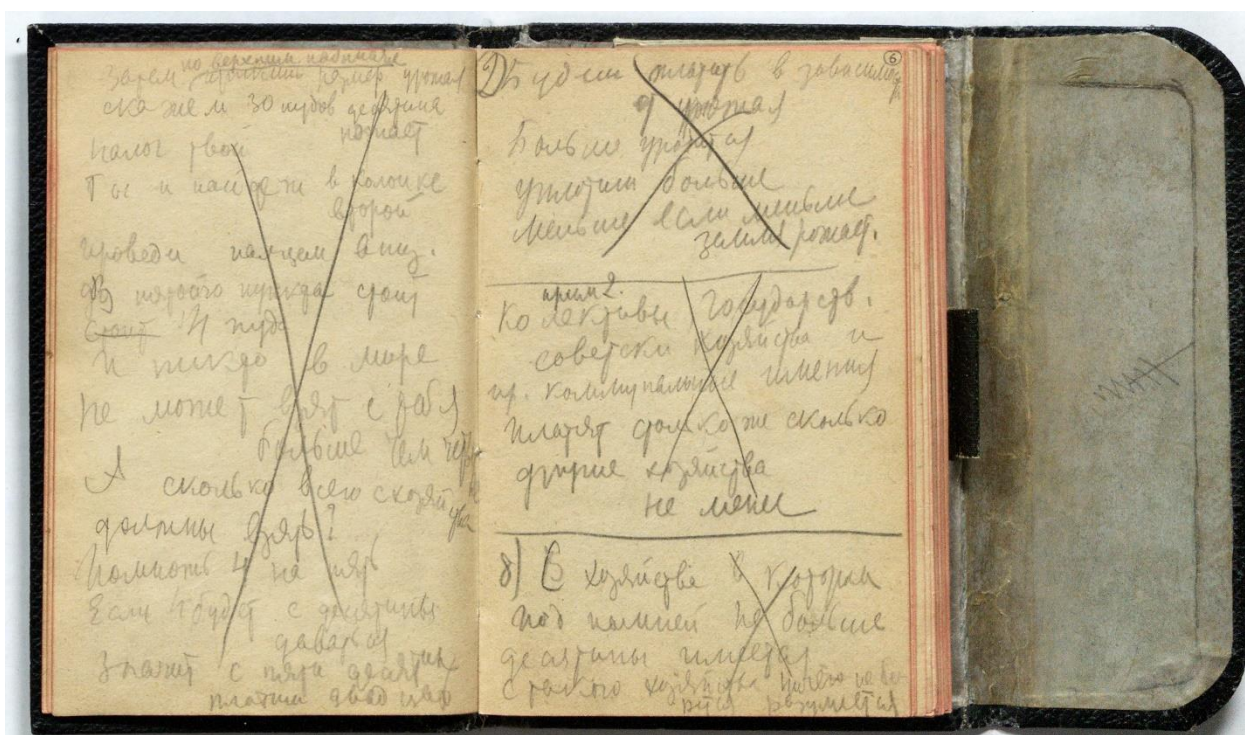 по верхним
Затем размер урожая
скажем 30 пудов десятина
рожает
налог твой
Ты и найдешь в колонке
второй
проведи пальцем вниз.
до пятого пункта стоит
стоит 4 пуда
И никто в мире
не может взят с тебя
больше чем четы
А сколько всего с хозяй
ства
должны взять?
Помножь 4 на пять
Если 4 будет с десятины
даваться
Значит с пяти десятин
платиш двадцать
6
Будеш платить в зависимо
от урожая
Больше уродится
уплотиш больше
меньше если меньше
земля рожает.
прим 2.
Колективы, государств.
советски хозяйства и
пр. коммунальные имения
платят столко же сколько
другие хозяйства
не мене
8) С хозяйства в котором
под пашней не больше
десятины имеется
с такого хозяйства ничего не бе
рется разумеется